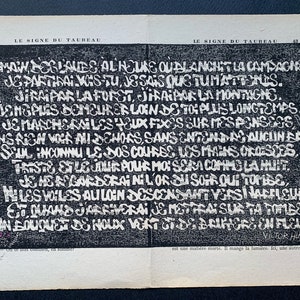 LE SIGNE DU TAUREAU
LE SIGNE DU TAUREAU
MAIN DES L'AUBE A L'HEURE OU BLANCHIT LA CAMPAGN
JE PARTIRAI VOIS TU, JE SAIS QUE TU M'ATTENDS.
J'IRAI PAR LA FORET, J'IRAI PAR LA MONTAGNE.
JE NE PUIS DEMEURER LOIN DE TOI PLUS LONGTEMPS
JE MARCHERAI LES YEUX FIXES SUR MES PENSEES
NS RIEN VOIR AU DEHORS SANS ENTENDRE AUCUN BR
SEUL INCONNU LE DOS COURBE LES MAINS CROISEES
TRISTE ET LE JOUR POUR MOI SERA COMME LA NUIT
JE NE REGARDERAI NI L'OR DU SOIR QUI TOMBE
NI LES VOILES AU LOIN DESCENDANT VERS HARFLEUR
ET QUAND J'ARRIVERAI JE METTRAI SUR TA TOMBE
UN BOUQUET DE HOUX VERT ET DE BRUYERE EN FLEU
VICTOR
est une matière morte. Il mange la lumière. Ici, une autre